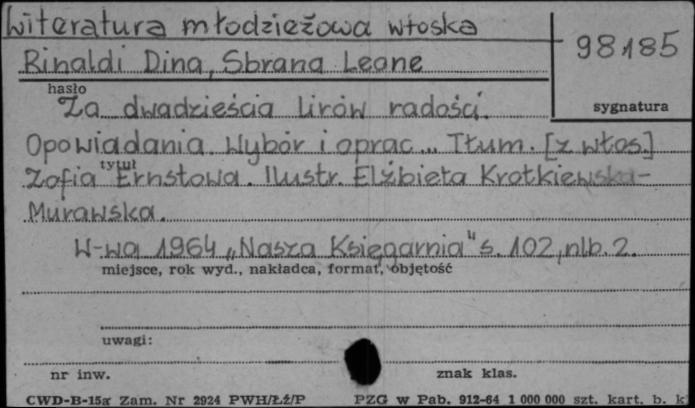 Literatura młodzieżowa włoska
98185
Rinaldi Dina, Sbrana Leone
hasło
Za dwadzieścia lirów radości.
sygnatura
Opowiadania. Wybór i oprac... Tłum. [z włos.]
tytuł
Zofia Ernstowa. Ilustr. Elżbieta Krotkiewska-
Murawska.
W-wa 1964 „Nasza Księgarnia" s. 102, nlb. 2.
miejsce, rok wyd., nakładca, format, objętość
uwagi:
nr inw.
znak klas.
CWD-B-15a Zam. Nr 2924 PWH/ŁŹ/P PZG w Pab. 912-64 1 000 000 szt. kart. b. k